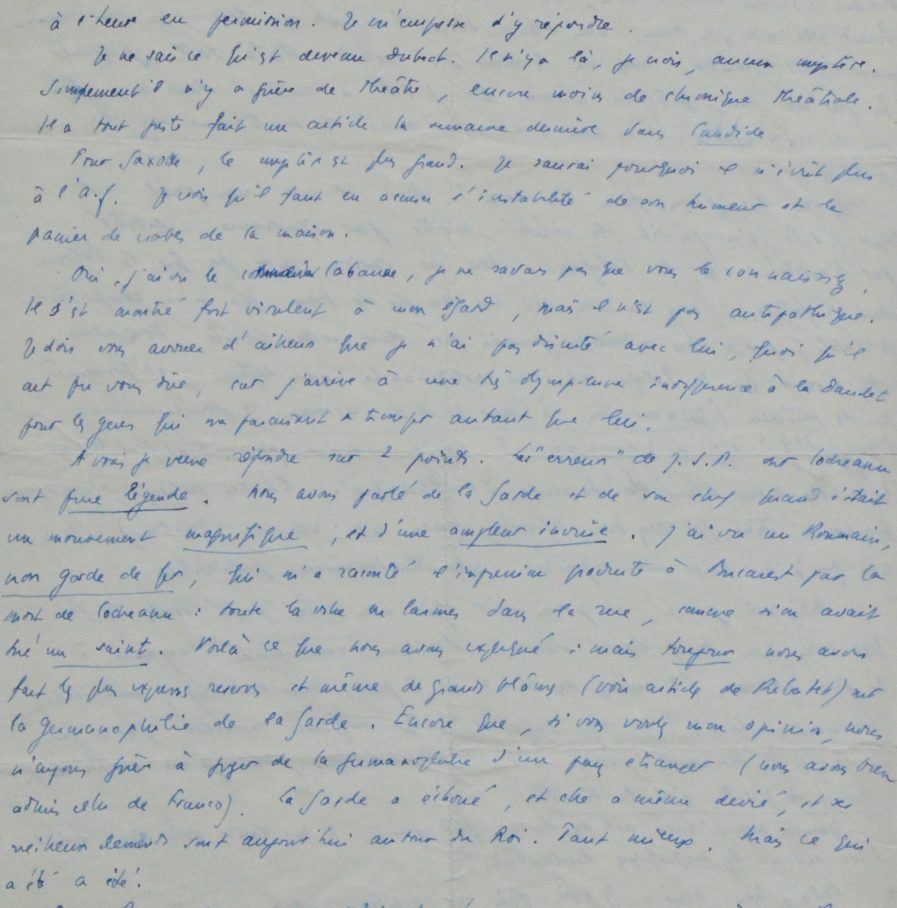 à l'heure en permission. Je m'empresse d'y répondre.
Je ne sais ce qu'est devenu Dubech. Il n'y a là, je crois, aucun mystère.
Simplement il n'y a guère de théâtre, encore moins de chronique théâtrale.
Il a tout juste fait un article la semaine dernière dans Candide
Pour Saxone, le mystère est plus grand. Je saurai pourquoi il n'écrit plus
à l'A.f. Je crois qu'il faut en accuser l'instabilité de son humeur et le
panier de crabes de la maison.
Oui, j'ai vu le Cabanne, je ne savais pas que vous le connaissiez.
Il s'est montré fort virulent à mon égard, mais il n'est pas antipathique.
Je dois vous avouer d'ailleurs que je n'ai pas discuté avec lui, quoi qu'il
ait pu vous dire, car j'arrive à une très olympienne indifférence à la Daudet
pour les gens qui me paraissent se tromper autant que lui.
A vous je veux répondre sur 2 points. Les "erreurs" de J.S.P. sur Codreanu
sont une légende. Nous avons parlé de la Garde et de son chef quand c'était
un mouvement magnifique, et d'une ampleur inouïe. J'ai vu un Roumain,
non garde de fer, qui m'a raconté l'impression produite à Bucarest par la
mort de Codreanu : toute la ville en larmes dans la rue, comme si on avait
tué un saint. Voilà ce que nous avons expliqué : mais toujours nous avons
fait les plus expresses réserves et même de grands blâmes (voir article de Rebatet) sur
la germanophilie de la Garde. Encore que, si vous voulez mon opinion, nous
n'ayons guère à juger de la germanophilie d'un pays étranger (nous avons bien
admis celui de Franco). La Garde a échoué, et elle a même dévié, et ses
meilleurs éléments sont aujourd'hui autour du Roi. Tant mieux. Mais ce qui
a été a été.